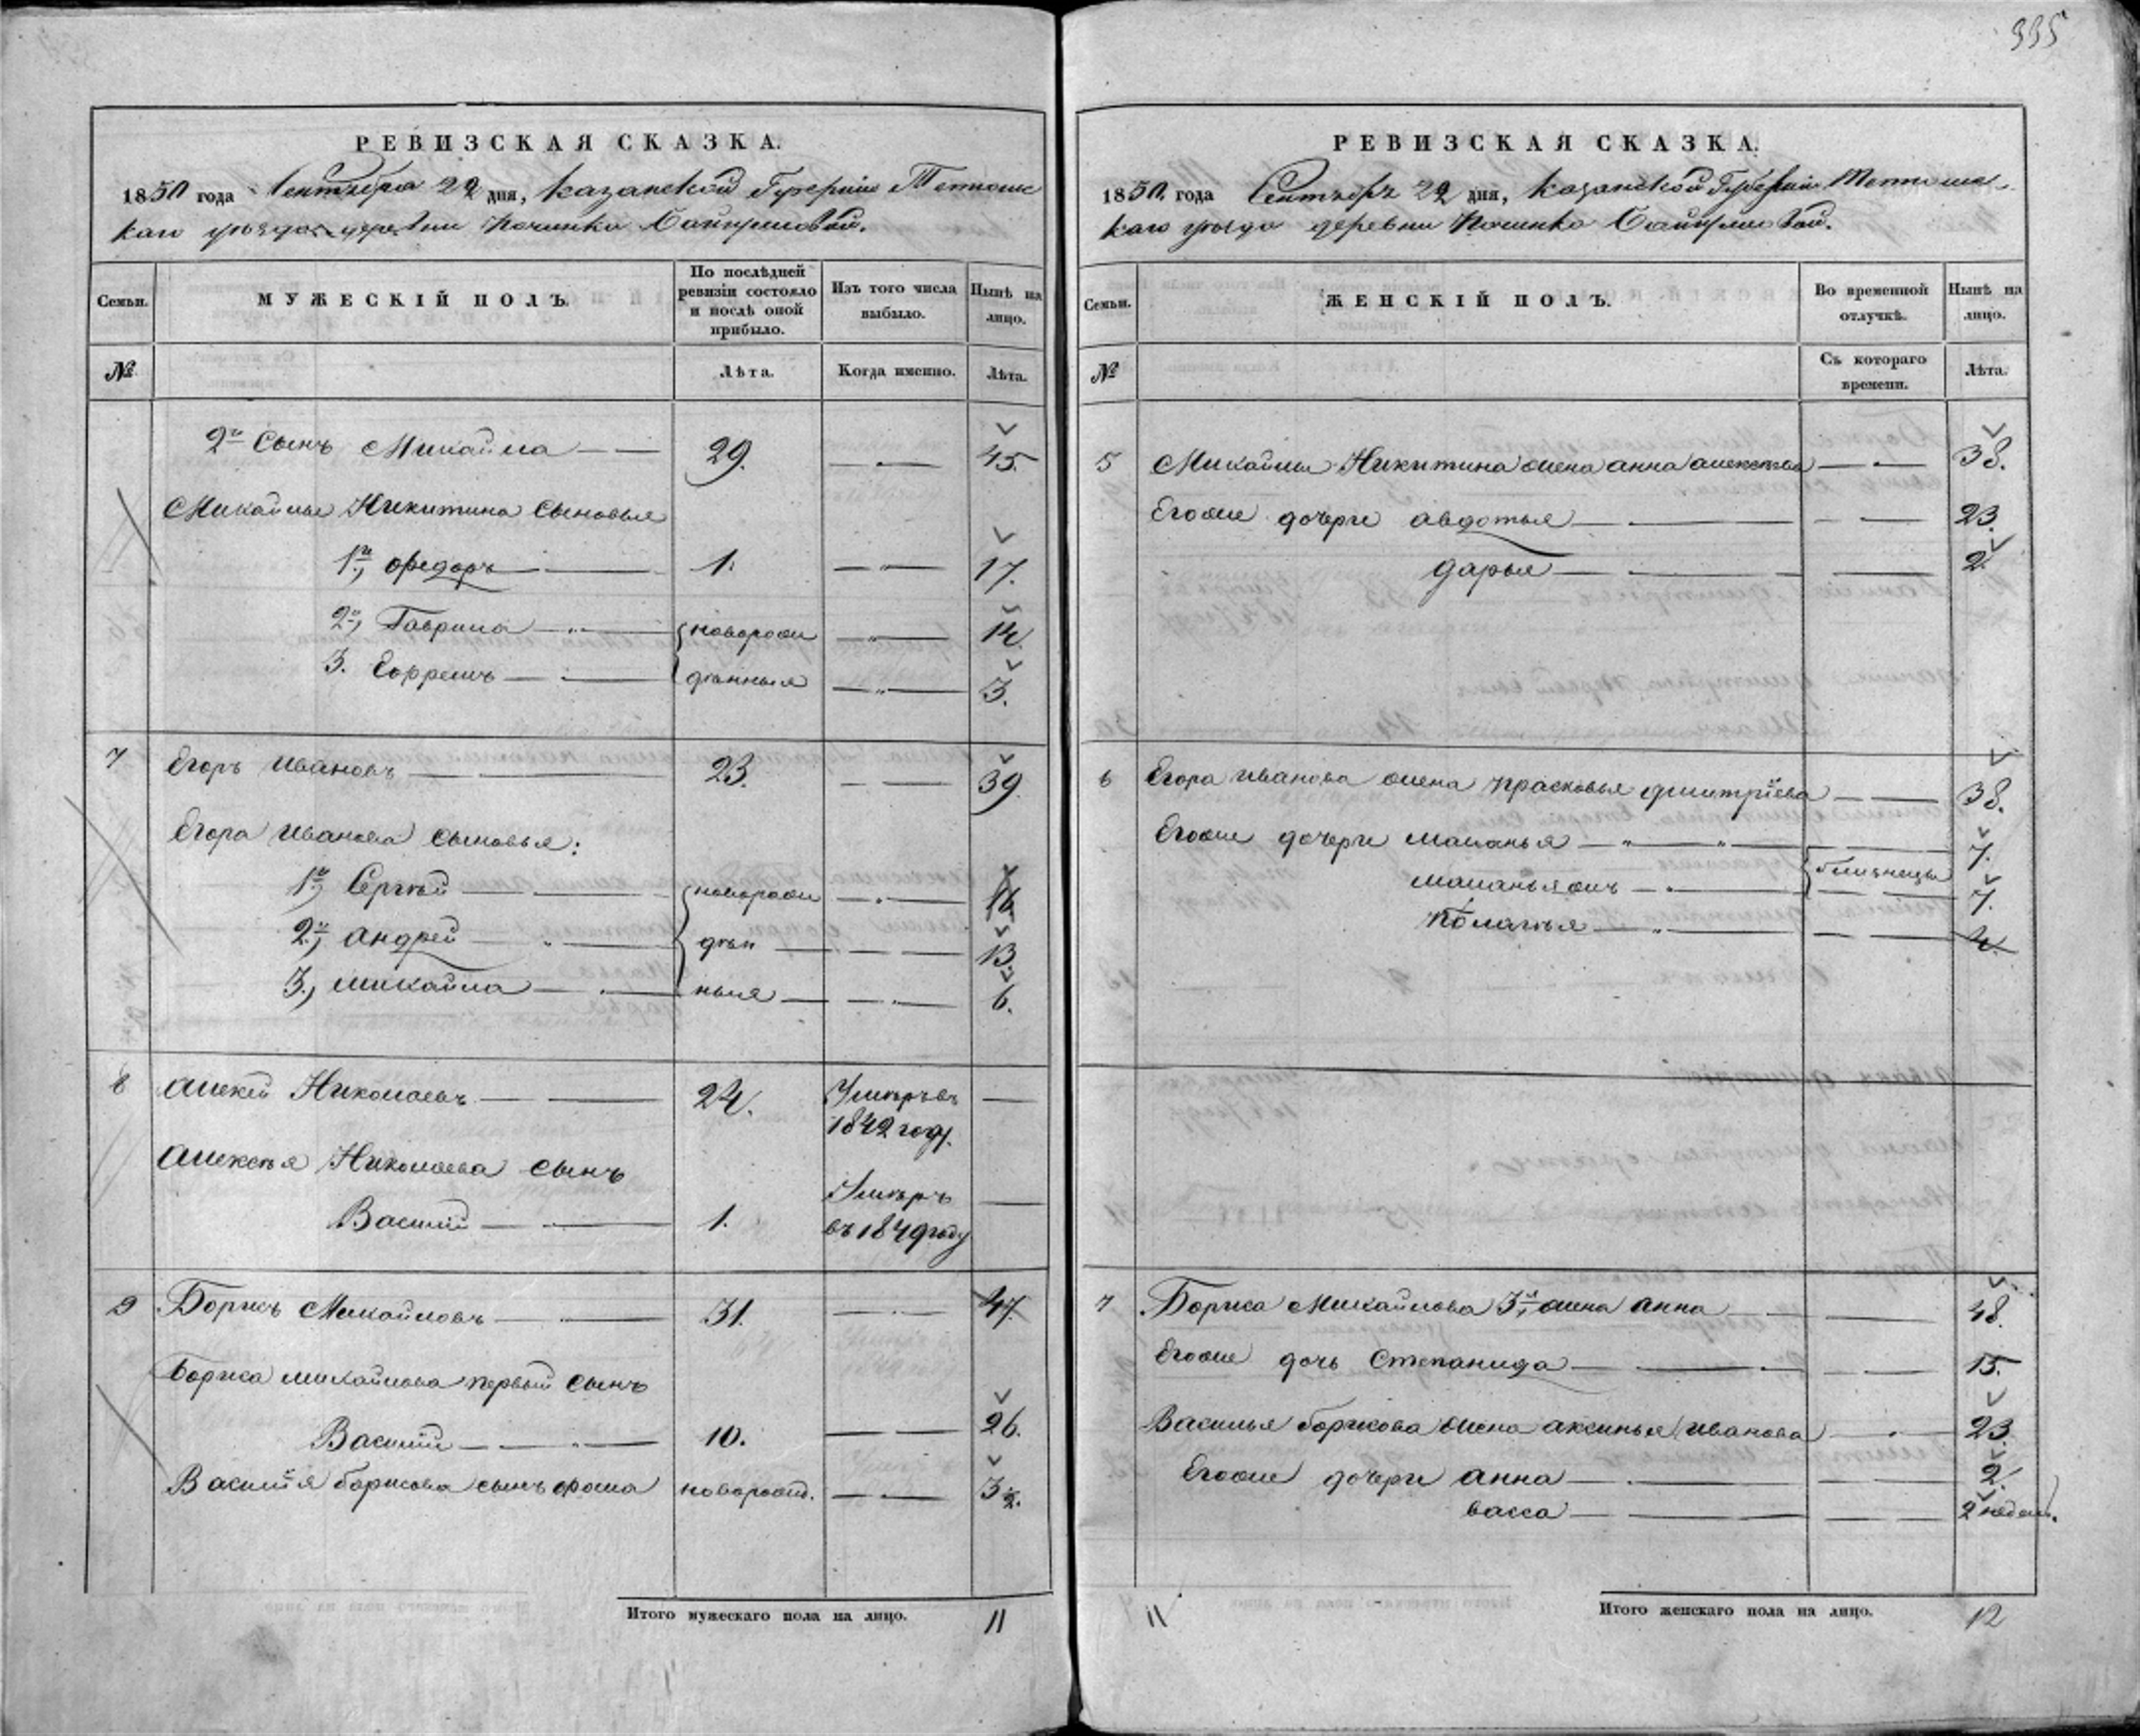 335
РЕВИЗСКАЯ СКАЗКА.
1850 года Сентября 22 дня, Казанской Губернии Тетюшс
каго уѣзда деревни Починка
Семьи.
МУЖЕСКІЙ ПОЛЪ.
По послѣдней ревизіи состояло и послѣ оной прибыло.
Изъ того числа выбыло.
Нынѣ на лицо.
№
Лѣта.
Когда именно.
Лѣта.
2й Сынъ Михайла 29. 45.
Михайлы Никитина Сыновья
1й, Федоръ 1. 17.
2й, Гаврила новорож 14.
3. Ефремъ дѣнныя 3.
7 Егоръ Ивановъ 23. 39.
Егора Иванова Сыновья:
1й, Сергѣй новорож 16.
2й, Андрей дѣн 13.
3, Михайла ныя 6.
8 Алексѣй Николаевъ 24. Умеръ въ
1842 году.
Алексѣя Николаева Сынъ Умеръ
Василій 1. въ 1849 году
9 Борисъ Михайловъ 31. 47.
Бориса Михайлова первый Сынъ
Василій 10. 26.
Василія Борисова сынъ Фома новорожд. 3½.
Итого мужескаго пола на лицо. 11
РЕВИЗСКАЯ СКАЗКА.
1850 года Сентябрь 22 дня, Казанской Губерніи Тетюшс-
каго уѣзда деревни Починка
Семьи.
ЖЕНСКІЙ ПОЛЪ.
Во временной отлучкѣ.
Нынѣ на лицо.
№
Съ котораго времени.
Лѣта.
5 Михайлы Никитина жена Анна Алексѣева 38.
Егоже дочери Авдотья 23.
Дарья 2.
6 Егора Иванова жена Прасковья Дмитріева 38.
Егоже дочери Маланья 7.
близнецы
Маланья жъ 7.
Пелагѣя 4.
7 Бориса Михайлова 3я, жена Анна 48.
Егоже дочь Степанида 15.
Василья Борисова жена Аксинья Иванова 23.
Егоже дочери Анна 2.
Васса 2 недѣль.
11 Итого женскаго пола на лицо. 12